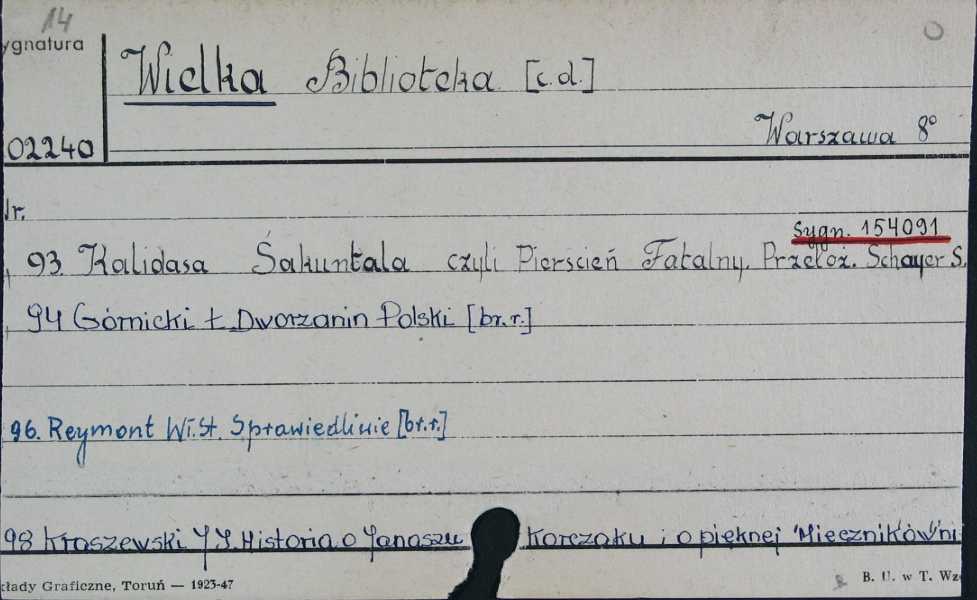 14
ygnatura
Wielka Biblioteka [c.d.]
02240
Warszawa 8°
Nr.
Sygn. 154091
93 Kalidasa Śakuntala czyli Pierscień Fatalny. Przełoż. Schayer S.
94 Górnicki Ł. Dworzanin Polski [br.r.]
96. Reymont Wł.St. Sprawiedliwie [br.r.]
98 Kraszewski J J. Historia o Janaszu Korczaku i o pięknej "Miecznikówni
kłady Graficzne, Toruń — 1923-47
B. U. w T. Wz